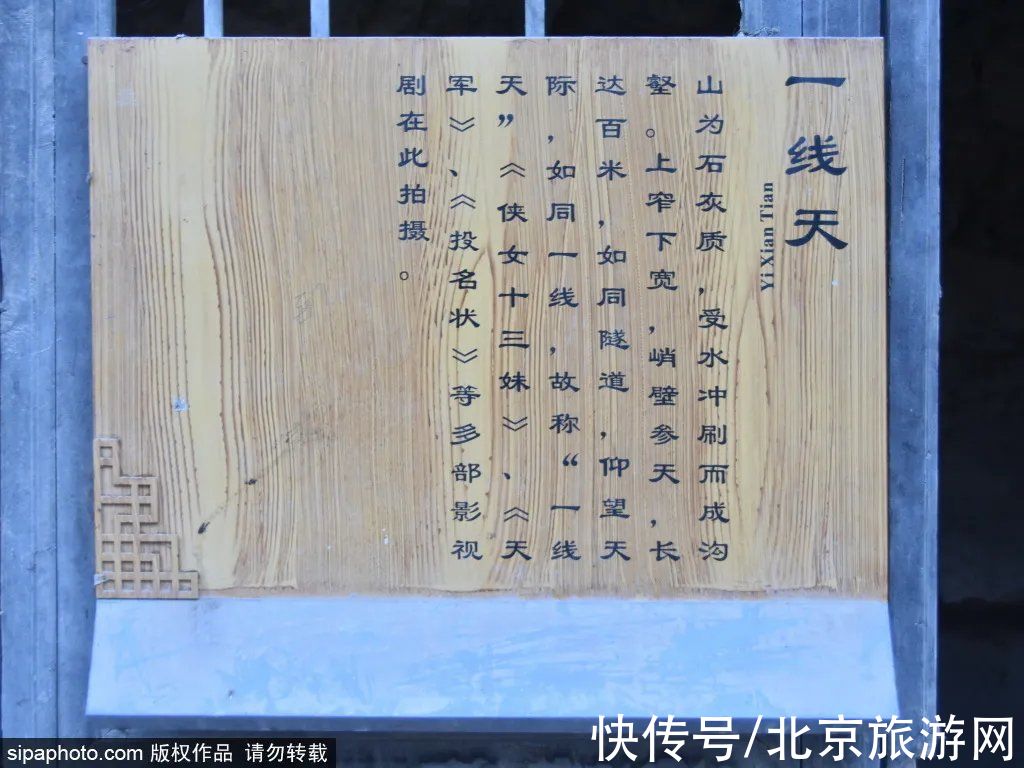 一线天
Yi Xian Tian
山为石灰质，受水冲刷而成沟
壑。上窄下宽，峭壁参天，长
达百米，如同隧道，仰望天
际，如同一线，故称“一线
天”《侠女十三妹》、《天
军》、《投名状》等多部影视
剧在此拍摄。
快传号/北京旅游网
sipaphoto.com 版权作品 请勿转载